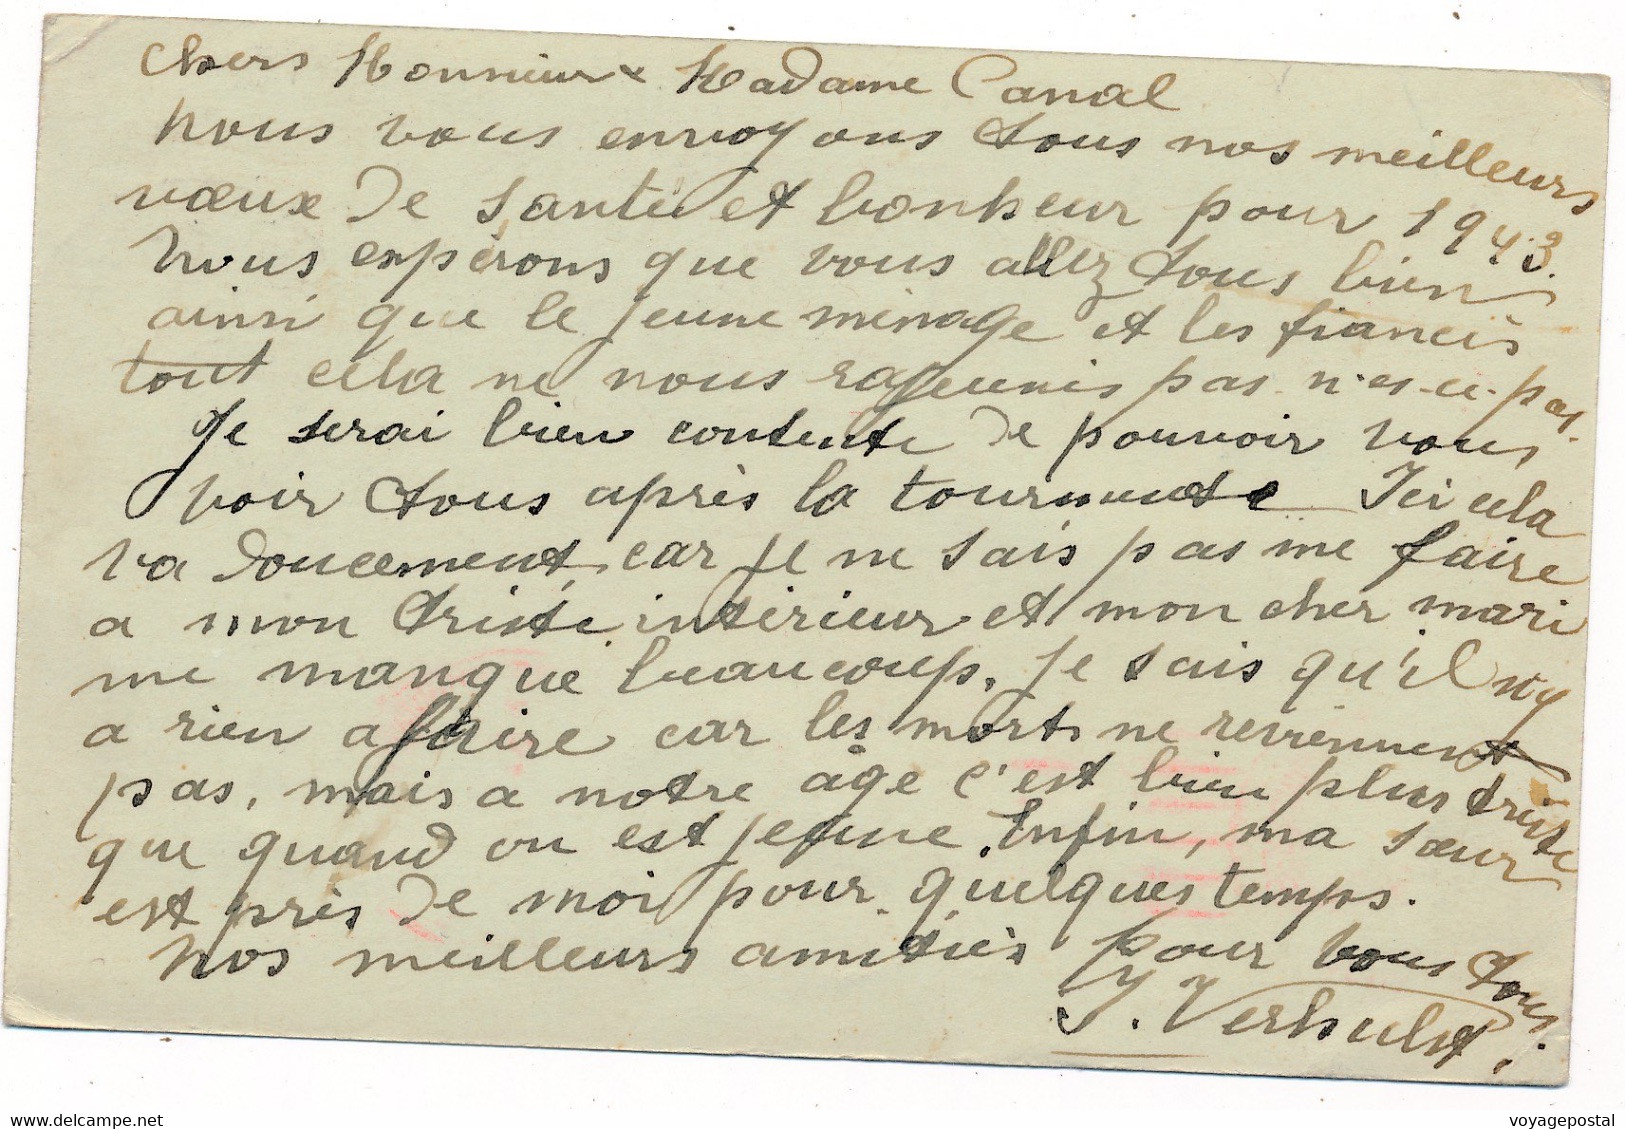 Chers Monsieur & Madame Canal
Nous vous envoyons tous nos meilleurs
vœux de santé et bonheur pour 1943.
Nous espèrons que vous allez tous bien
ainsi que le jeune ménage et les fiancés
tout cela ne nous rajeunis pas n'es-ce-pas.
Je serai bien contente de pouvoir vous
voir tous après la tourmente Ici cela
va doucement, car je ne sais pas me faire
a mon triste intérieur et mon cher mari
me manque beaucoup, je sais qu'il n'y
a rien a faire car les morts ne reviennent
pas, mais a notre âge c'est bien plus triste
que quand on est jeune. Enfin, ma sœur
est près de moi pour quelques temps.
Nos meilleurs amitiés pour vous tous.
Y. Verhulst.
www.delcampe.net
voyagepostal